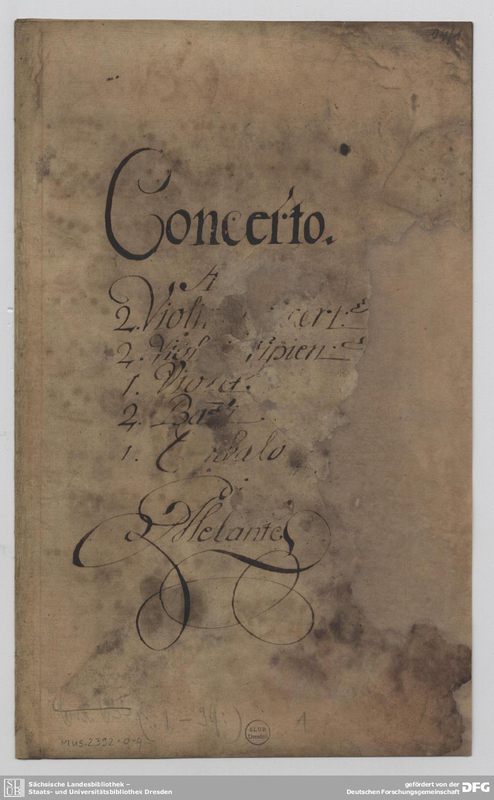 Concerto.
A
2. Violi cert:e
2. Viol ipien:e
1. Viola.
2. Bassi
1. Cembalo
di
Melante
Mus. 2392-0-9
SLUB
Dresden
1
SLUB
Sächsische Landesbibliothek –
Staats- und Universitätsbibliothek Dresden
gefördert von der
Deutschen Forschungsgemeinschaft
DFG